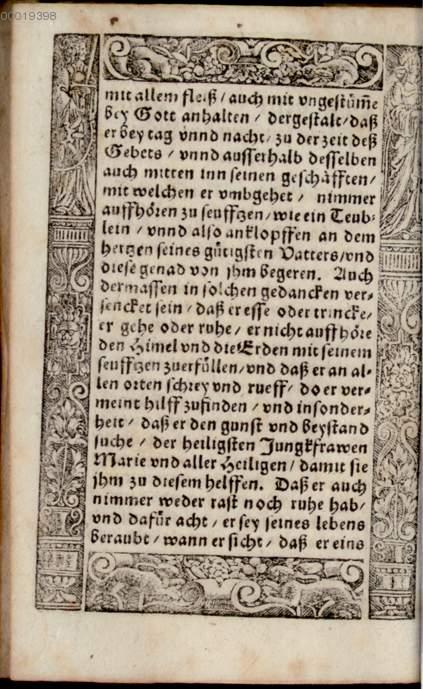 00019398
mit allem fleiß / auch mit vngestům̃e
bey Gott anhalten / dergestalt / daß
er bey tag vnnd nacht / zu der zeit deß
Gebets / vnnd ausserhalb desselben
auch mitten inn seinen geschäfften /
mit welchen er vmbgehet / nimmer
auffhören zu seufftzen / wie ein Teub-
lein / vnnd also anklopffen an dem
hertzen seines gůtigsten Vatters / vnd
diese genad von jhm begeren. Auch
dermassen in solchen gedancken ver-
sencket sein / daß er esse oder trincke /
er gehe oder ruhe / er nicht auffhöre
den Himel vnd die Erden mit seinem
seufftzen zuerfüllen / vnd daß er an al-
len orten schrey vnd rueff / do er ver-
meint hilff zufinden / vnd insonder-
heit / daß er den gunst vnd beystand
suche / der heiligsten Jungkfrawen
Marie vnd aller Heiligen / damit sie
jhm zu diesem helffen. Daß er auch
nimmer weder rast noch ruhe hab /
vnd dafür acht / er sey seines lebens
beraubt / wann er sicht / daß er eins